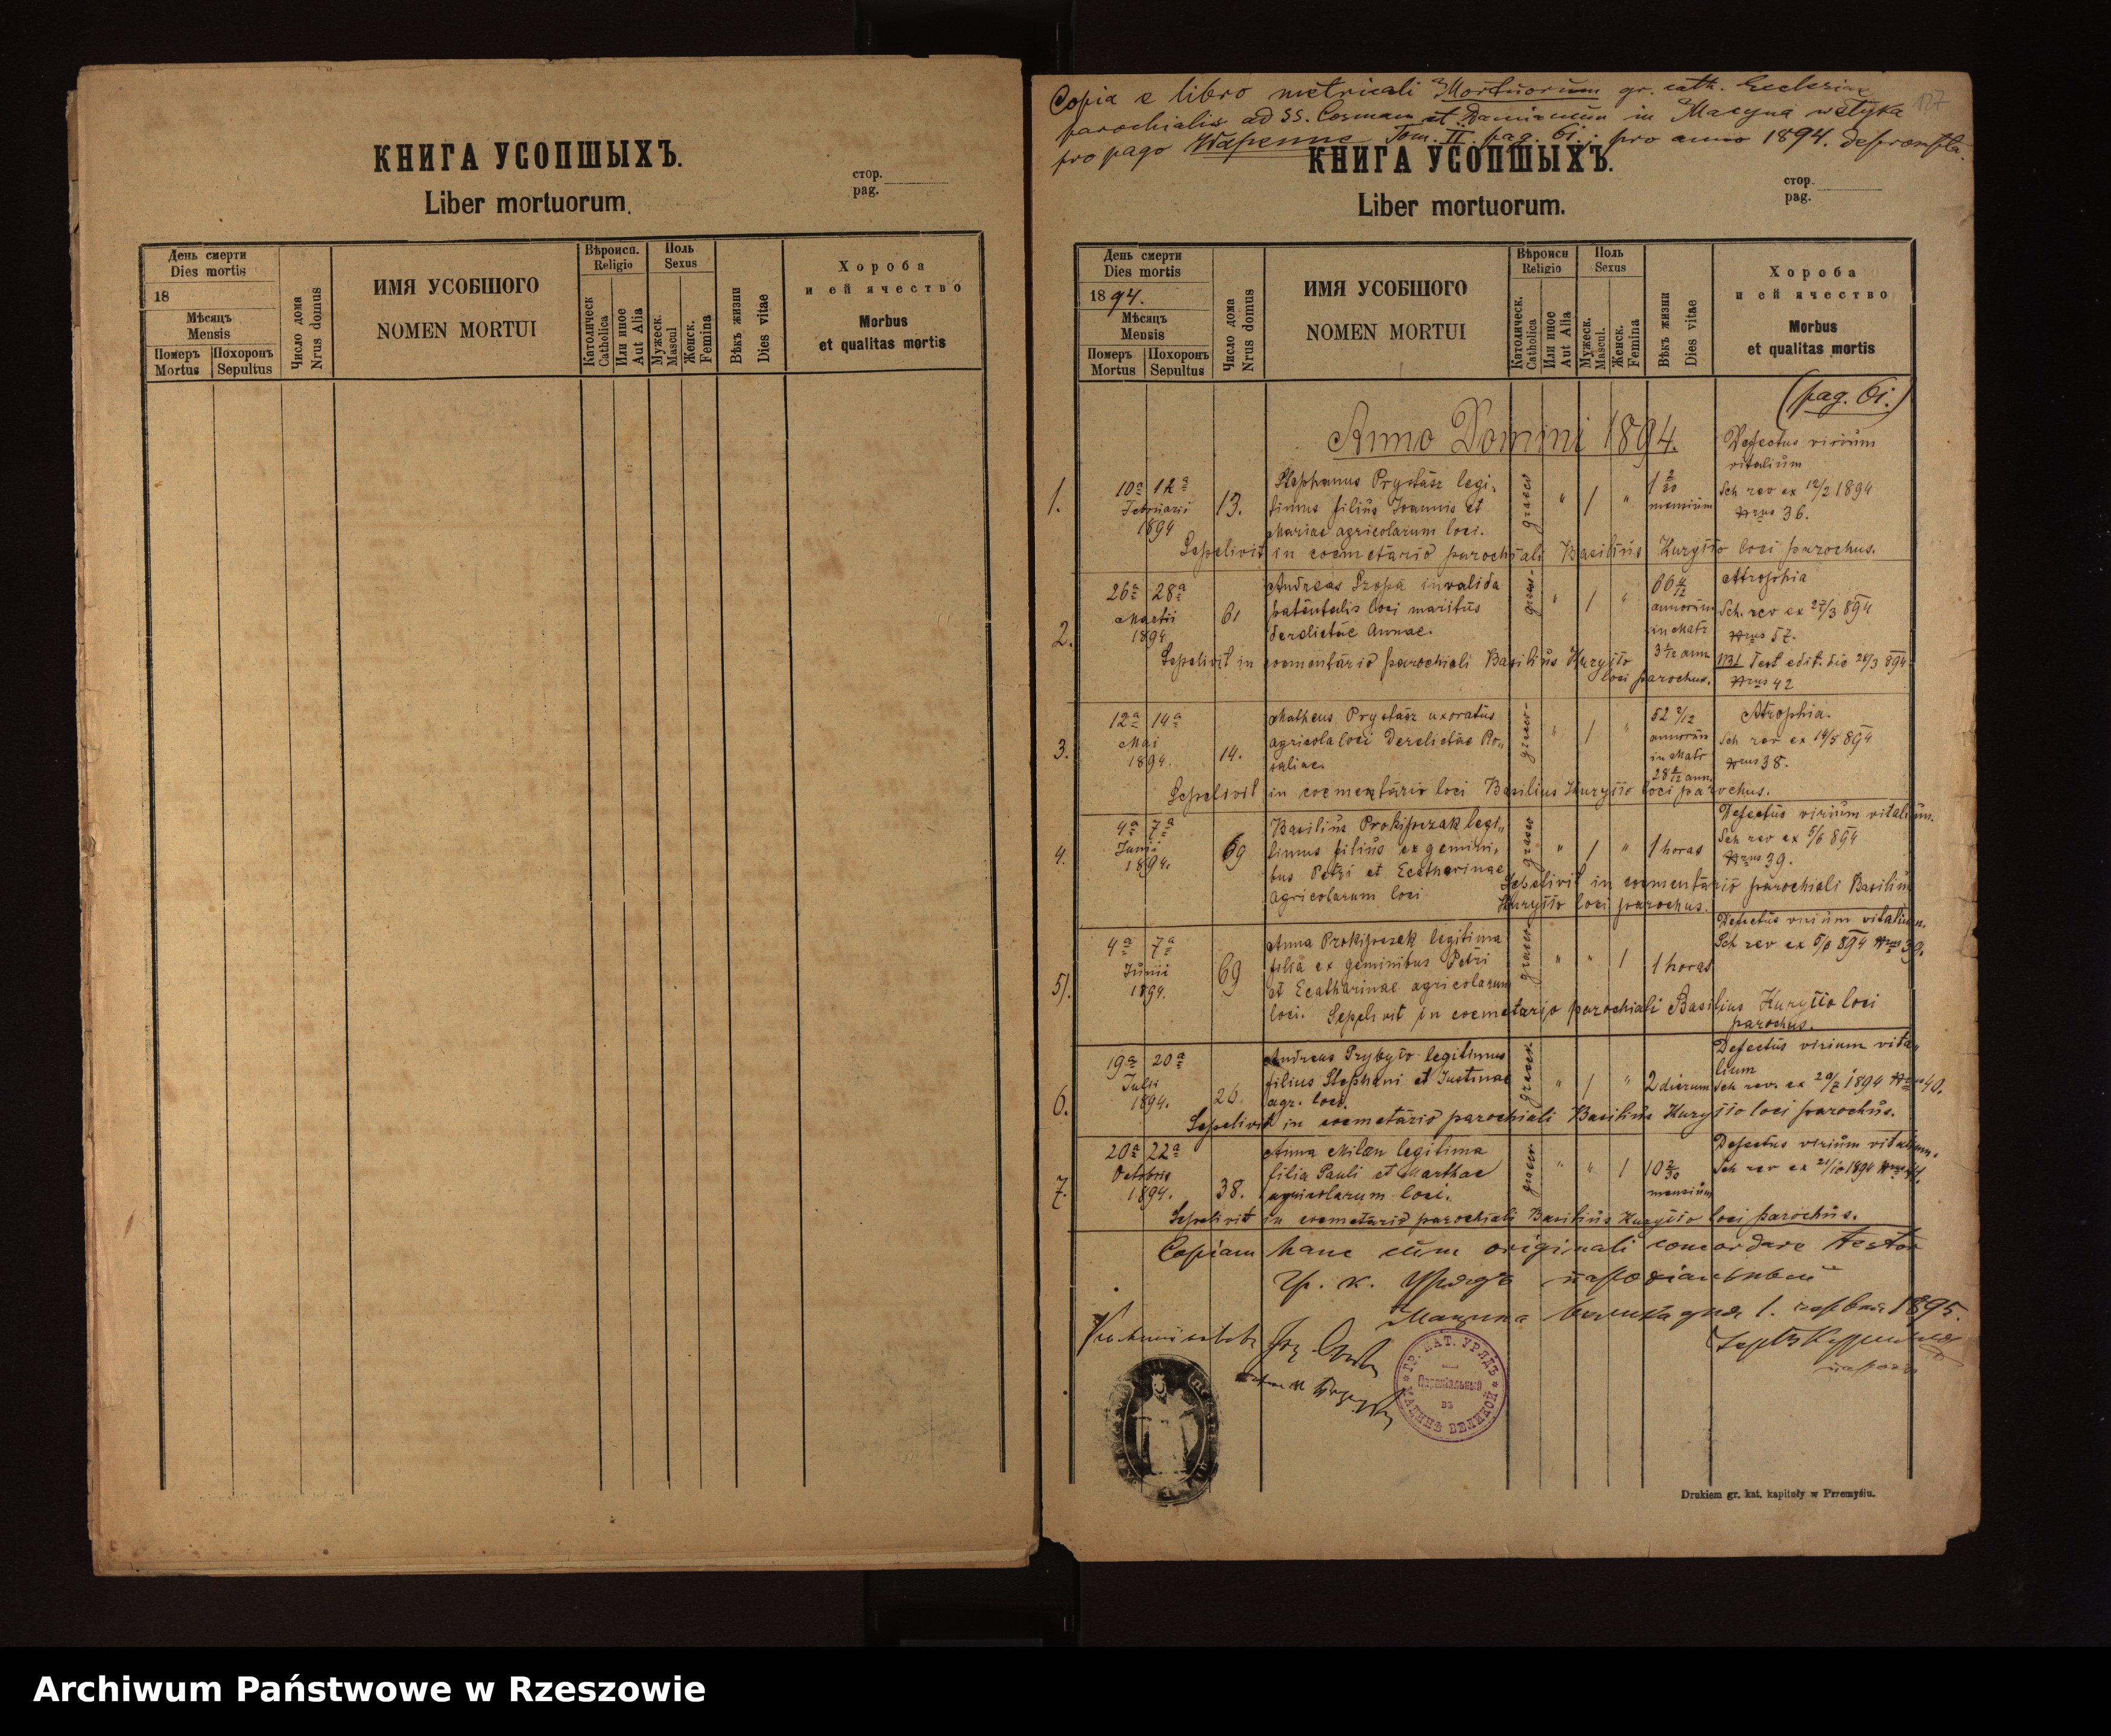 КНИГА УСОПШЫХЪ.
Liber mortuorum.
стор.
pag.
День смерти
Dies mortis
18
Мѣсяцъ
Mensis
Померъ
Mortus
Похоронъ
Sepultus
Число дома
Nrus domus
ИМЯ УСОБШОГО
NOMEN MORTUI
Вѣроисп.
Religio
Католическ
Catholica
Или иное
Aut Alia
Поль
Sexus
Мужеск.
Mascul
Женск.
Femina
Вѣкъ жизни
Dies vitae
Хороба
и ей ячество
Morbus
et qualitas mortis
Copia e libro metricali Mortuorum gr. cath. Ecclesiae
parochialis ad SS. Cosmam et Damianum in Macyna wełyka
pro pago Wapenne Tom. II. pag. 61. pro anno 1894. deprompta.
127
КНИГА УСОПШЫХЪ.
Liber mortuorum.
стор.
pag.
День смерти
Dies mortis
1894.
Мѣсяцъ
Mensis
Померъ
Mortus
Похоронъ
Sepultus
Число дома
Nrus domus
ИМЯ УСОБШОГО
NOMEN MORTUI
Вѣроисп
Religio
Католическ.
Catholica
Или иное
Aut Alia
Поль
Sexus
Мужеск.
Mascul.
Женск.
Femina
Вѣкъ жизни
Dies vitae
Хороба
и ей ячество
Morbus
et qualitas mortis
(pag. 61.)
Anno Domini 1894.
1.
10a 12a
Februarii
1894
13.
Stephanus Prystasz legi„
timus filius Joannis et
Mariae agricolarum loci.
graeco
" / "
1 2/30
mensium
Defectus virium
vitalium
Sch rev ex 12/2 1894
Nrus 36.
Sepelivit in coemetario parochiali Basilius Kuryłło loci parochus.
2.
26a 28a
Martii
1894
61
Andreas Szopa invalida
patentalis loci maritus
derelictae Annae.
" / "
66 4/12
annorum
in Matr
3 4/12 ann
Atrophia
Sch. rev ex 27/3 894
Nrus 57.
Nrus 42
Sepelivit in coementario parochiali Basilius Kuryłło
loci parochus.
3.
12a 14a
Mai
1894.
14.
Matheus Prystasz uxoratus
agricola loci derelictae Ro„
saliae.
graeco-
" / "
52 8/12
annorum
in Matr
Atrophia.
Sch rev ex 14/5 894
Nrus 38.
Sepelivit in coementario loci Basilius Kuryłło loci parochus.
4.
4a 7a
Junii
1894.
69
Basilius Prokipczak legi„
timus filius ex gemini„
bus Petri et Ecatharinae
agricolarum loci
graeco
" / "
1 horas
Defectus virium vitalium.
Sch rev ex 5/6 894
Nrus 39.
Sepelivit in coementario parochiali Basilius
Kuryłło loci parochus.
5).
4a 7a
Junii
1894.
69
Anna Prokipczak legitima
filia ex geminibus Petri
et Ecatharinae agricolarum
loci. Sepelivit in coemetario parochiali Basilius Kuryłło loci
parochus.
graeco-
" " /
1 horas
Defectus virium vitalium.
Sch rev ex 5/6 894 Nrus 39.
6.
19a 20a
Julii
1894.
26.
Andreas Przybyło legitimus
filius Stephani et Justinae
agr. loci.
graeco.
" / "
2 dierum
Defectus virium vita„
lium
Sch rev. ex 20/7 1894 Nrus 40.
Sepelivit in coemetario parochiali Basilius Kuryłło loci parochus.
7.
20a 22a
Octobris
1894.
38.
Anna Milan legitima
filia Pauli et Marthae
agricolarum loci.
graeco-
" " /
10 2/30
mensium
Defectus virium vitalium.
Sch rev ex 21/10 1894 Nrus 41.
Sepelivit in coemetario parochiali Basilius Kuryłło loci parochus.
Copiam hanc cum originali concordare testor
Гр. к. Урядъ парохіяльный
Мацина велика дня 1. 1895.
ГР. КАТ. УРЯДЪ
Парохіальный
въ
МАЦИНѢ ВЕЛИКОЙ
Drukiem gr. kat. kapituły w Przemyślu.
Archiwum Państwowe w Rzeszowie